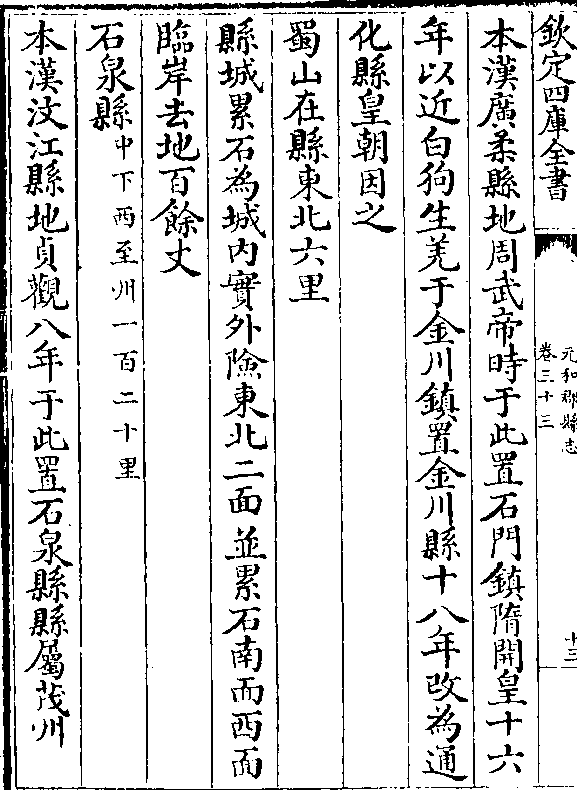 欽定四庫全書
元和郡縣志
卷三十三
十三
本漢廣柔縣地周武帝時于此置石門鎮隋開皇十六
年以近白狗生羌于金川鎮置金川縣十八年改為通
化縣皇朝因之
蜀山在縣東北六里
縣城累石為城内實外險東北二面並累石南面西面
臨岸去地百餘丈
石泉縣中下西至州一百二十里
本漢汶江縣地貞觀八年于此置石泉縣縣屬茂州